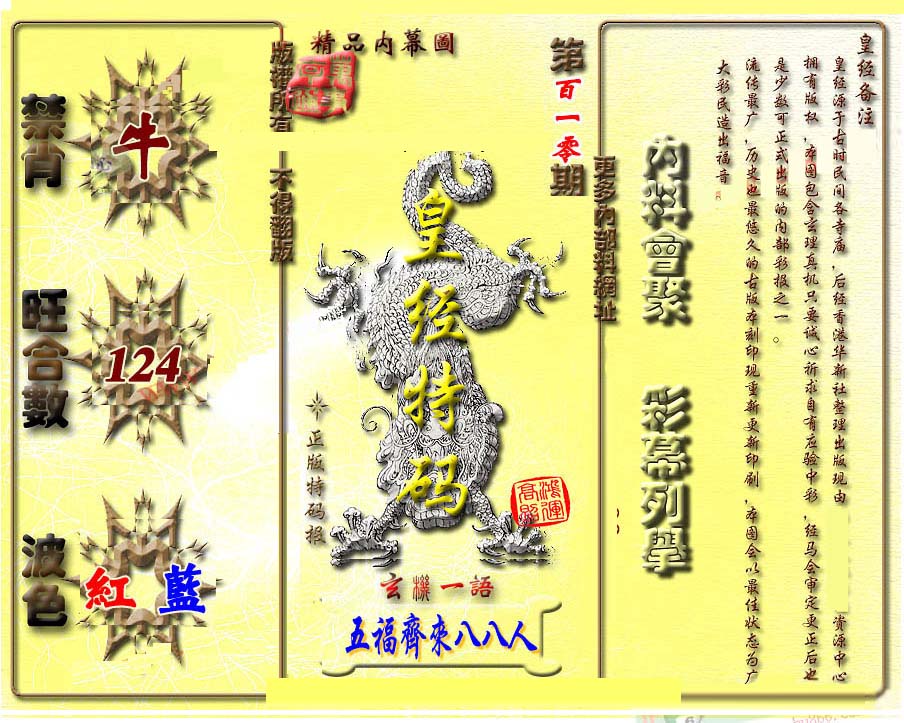 禁肖
牛
旺合數
124
波色
紅 藍
精品内幕圖
版權所有
不得翻版
第百一零期
皇经特码
正版特码报
鴻運
高照
玄機一語
五福齊來八八人
更多內部料網址
内料會聚
彩幕列舉
皇经备注
皇经源于古时民间各寺庙,后经香港华新社整理出版现由 资源中心
拥有版权,本图包含玄理真机只要诚心祈求自有应验中彩,经马会审定更正后也
是少数可正式出版的内部彩报之一。
流传最广,历史也最悠久的古版本刻印现重新更新印刷,本图会以最佳状态为广
大彩民造出福音